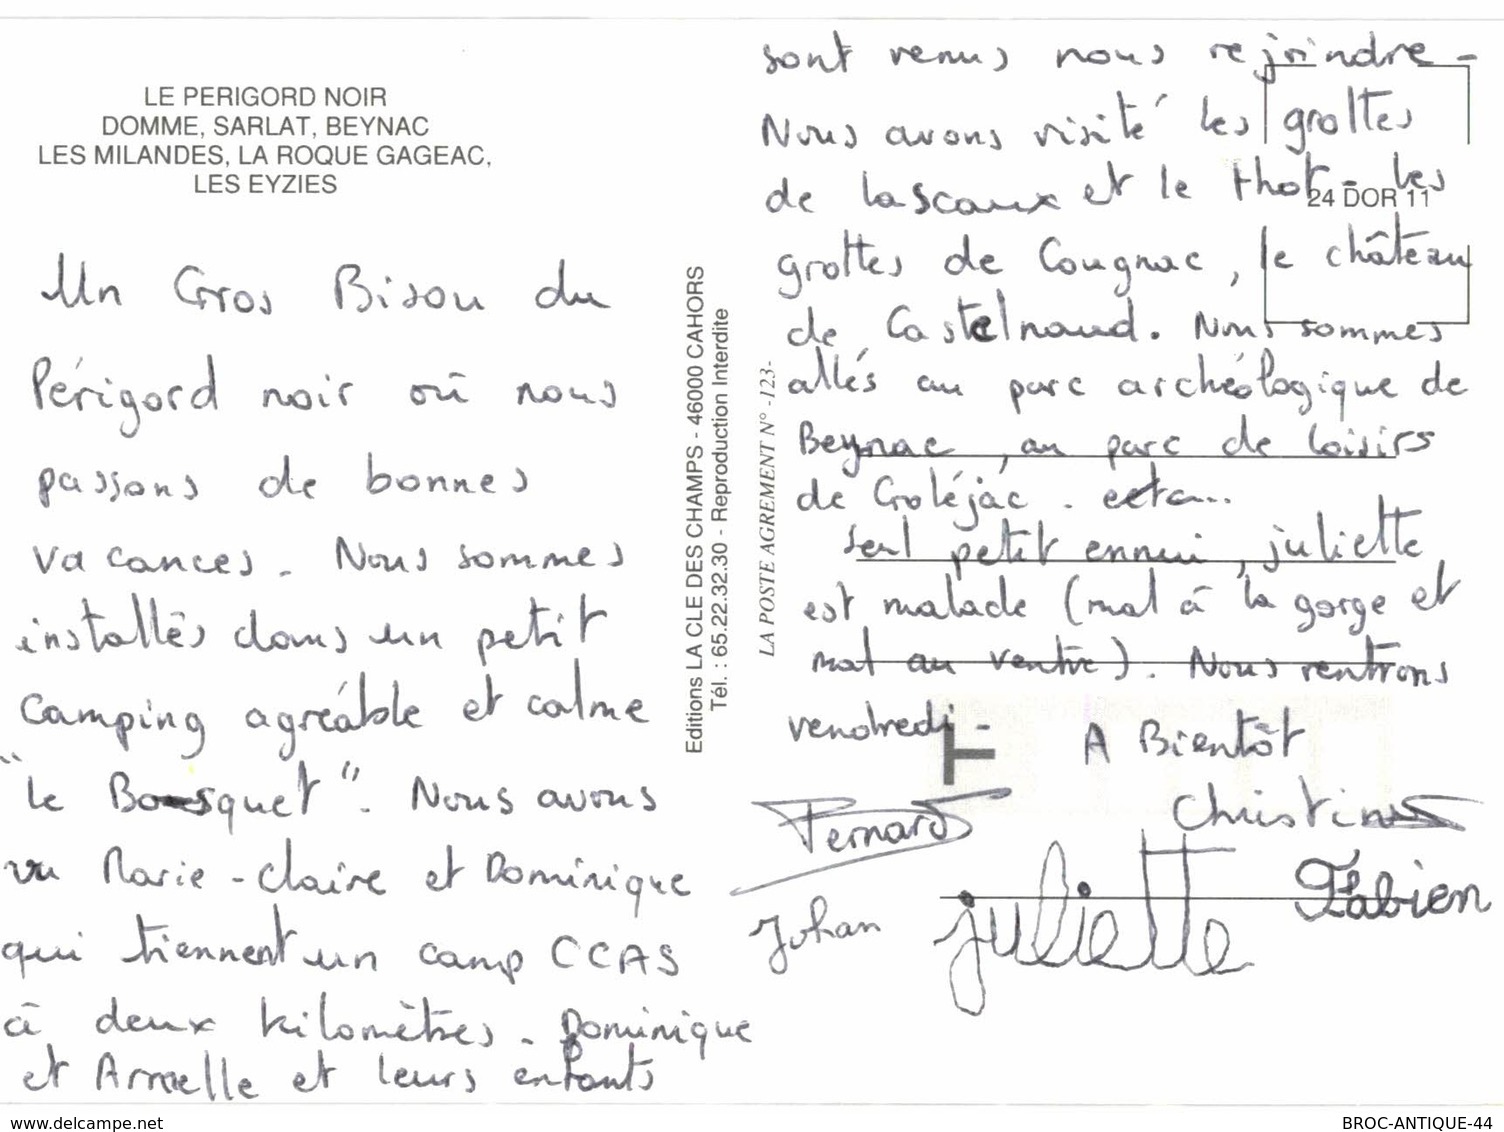 LE PERIGORD NOIR
DOMME, SARLAT, BEYNAC
LES MILANDES, LA ROQUE GAGEAC,
LES EYZIES
Un Gros Bisou du
Périgord noir où nous
passons de bonnes
vacances. Nous sommes
installés dans un petit
camping agréable et calme
"le Bosquet". Nous avons
vu Marie-Claire et Dominique
qui tiennent un camp CCAS
à deux kilomètres. Dominique
et Armelle et leurs enfants
Editions LA CLE DES CHAMPS - 46000 CAHORS
Tél. : 65.22.32.30 - Reproduction Interdite
LA POSTE AGREMENT N° -123-
sont venus nous rejoindre -
Nous avons visité les grottes
de Lascaux et le thot - les
24 DOR 11
grottes de Cougnac, le château
de Castelnaud. Nous sommes
allés au parc archéologique de
Beynac, au parc de loisirs
de Groléjac. ecta...
Seul petit ennui, juliette
est malade (mal à la gorge et
mal au ventre). Nous rentrons
vendredi -
T
A Bientôt
Christine
Bernard
Johan
juliette
Fabien
delcampe.net
BROC-ANTIQUE-44